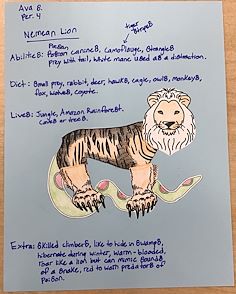 Ava B.
Per. 4
Nemean Lion
tiger
stripes
Poison,
Abilities: Poison canines, Camoflouge, Strangle
Prey with tail, white mane used as a distraction.
Diet: Small prey, rabbit, deer, hawks, eagle, owls, monkeys,
fox, wolves, coyote.
Lives: Jungle, Amazon Rainforest.
caves or trees.
Extra: Skilled climbers, like to hide in swamps,
hibernate during winter, warm-blooded,
roar like a lion but can mimic sounds
of a snake, red to warn predators of
poison.